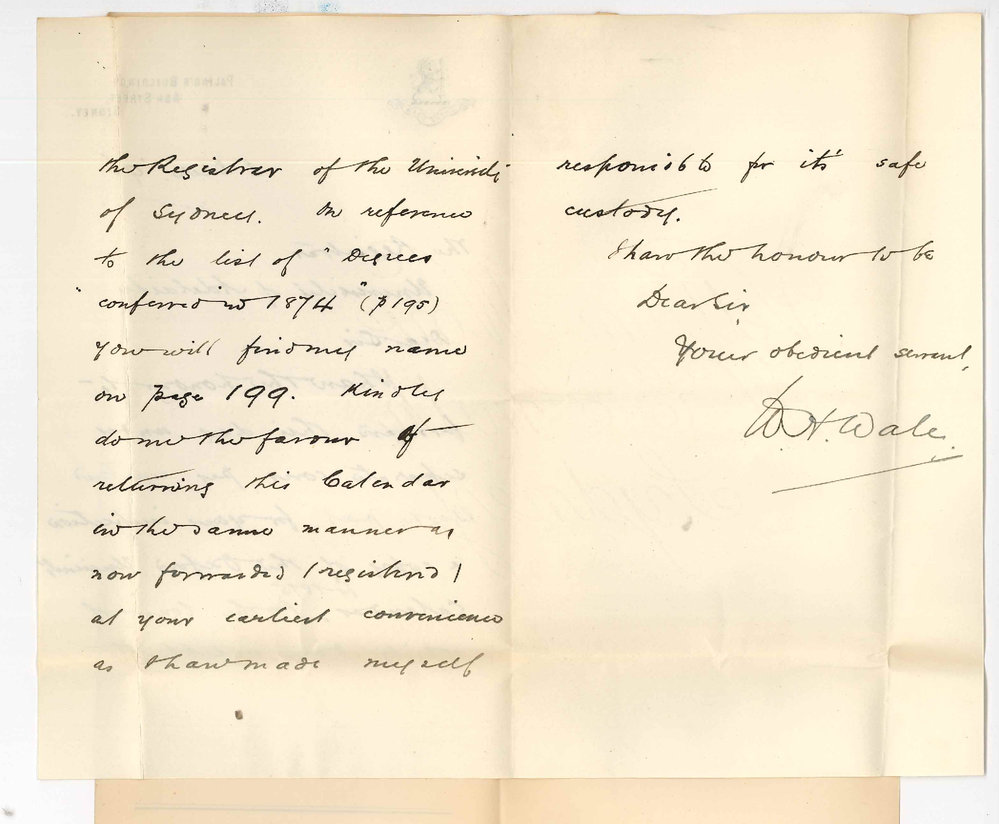 the Registrar of the University
of Sydney. On reference
to the list of "Degrees
"conferred in 1874" (p 195)
you will find my name
on page 199. Kindly
do me the favour of
returning this Calendar
in the same manner as
now forwarded (registered)
at your earliest convenience
as I have made myself
responsible for its' safe
custody.
I have the honour to be
Dear Sir,
Your obedient servant,
W. H. Wale.